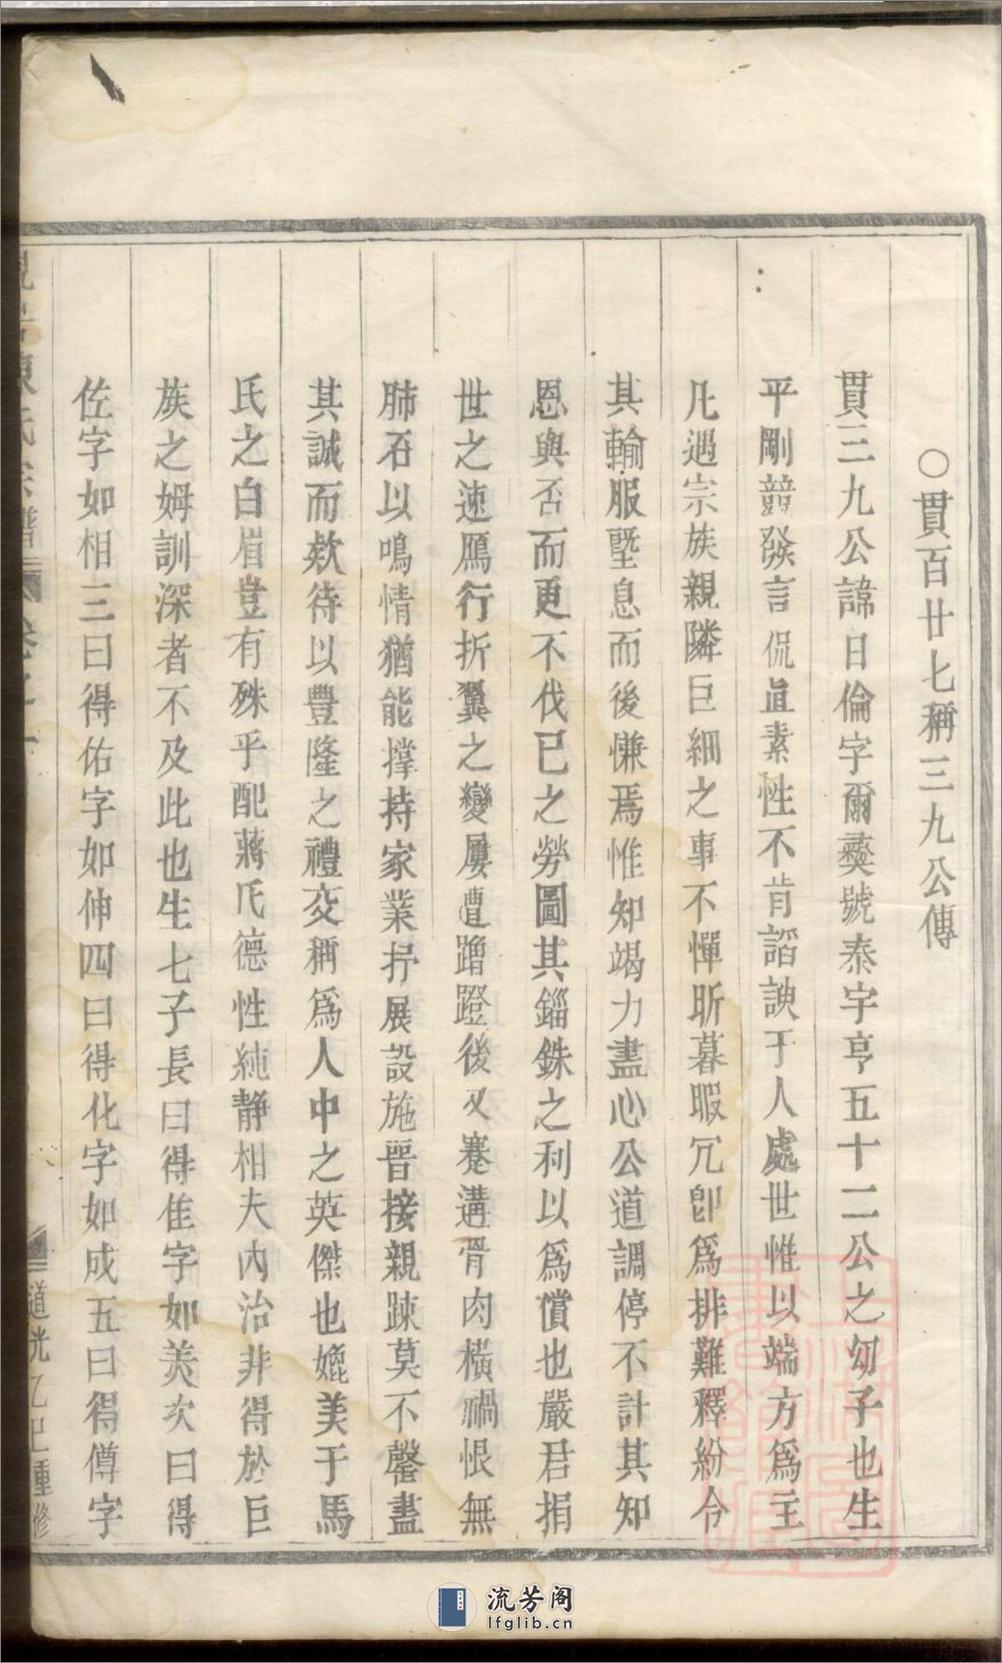 ○貫百廿七稱三九公傳
貫三九公諱日倫字爾彝號泰宇亨五十二公之幼子也生
平剛競發言侃眞素性不肯謟諛于人處世惟以端方爲主
凡遇宗族親隣巨細之事不憚昕暮暇冗卽爲排難釋紛令
其輸服塈息而後慊焉惟知竭力盡心公道調停不計其知
恩與否而更不伐已之勞圖其錙銖之利以爲償也嚴君捐
世之速鴈行折翼之變屢遭蹭蹬後又蹇遘骨肉橫禍恨無
肺石以鳴情猶能撑持家業抒展設施晉接親疎莫不罄盡
其誠而欵待以豐隆之禮交稱爲人中之英傑也媲美于馬
氏之白眉豈有殊乎配蔣氏德性純靜相夫內治非得於巨
族之姆訓深者不及此也生七子長曰得隹字如美次曰得
佐字如相三曰得佑字如伸四曰得化字如成五曰得僔字
陳氏宗譜 卷之一 道光乙巳重修
流芳阁
lfglib.cn